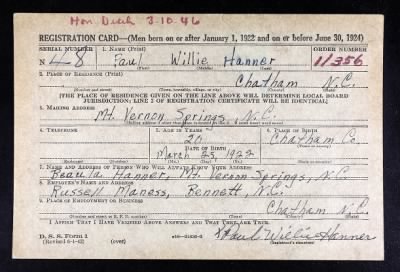 Hon. Disch 3-10-46
REGISTRATION CARD—(Men born on or after January 1, 1922 and on or before June 30, 1924)
SERIAL NUMBER 1. NAME (Print) ORDER NUMBER
N 48 Paul Willie Hanner 11356
(First) (Middle) (Last)
2. PLACE OF RESIDENCE (Print)
Chatham N.C.
(Number and street) (Town, township, village, or city) (County) (State)
[THE PLACE OF RESIDENCE GIVEN ON THE LINE ABOVE WILL DETERMINE LOCAL BOARD
JURISDICTION; LINE 2 OF REGISTRATION CERTIFICATE WILL BE IDENTICAL]
3. MAILING ADDRESS
Mt. Vernon Springs, N.C.
4. TELEPHONE 5. AGE IN YEARS 6. PLACE OF BIRTH
20 Chatham Co.
DATE OF BIRTH
March 25, 1922 N.C.
7. NAME AND ADDRESS OF PERSON WHO WILL ALWAYS KNOW YOUR ADDRESS
Beaula Hanner, Mt. Vernon Springs, N.C.
8. EMPLOYER'S NAME AND ADDRESS
Russell Maness, Bennett, N.C.
9. PLACE OF EMPLOYMENT OR BUSINESS
Chatham N.C.
(Number and street or R. F. D. number) (Town) (County) (State)
I AFFIRM THAT I HAVE VERIFIED ABOVE ANSWERS AND THAT THEY ARE TRUE.
D. S. S. Form 1
(Revised 6-1-42) (over) Paul Willie Hanner
(Registrant's signature)